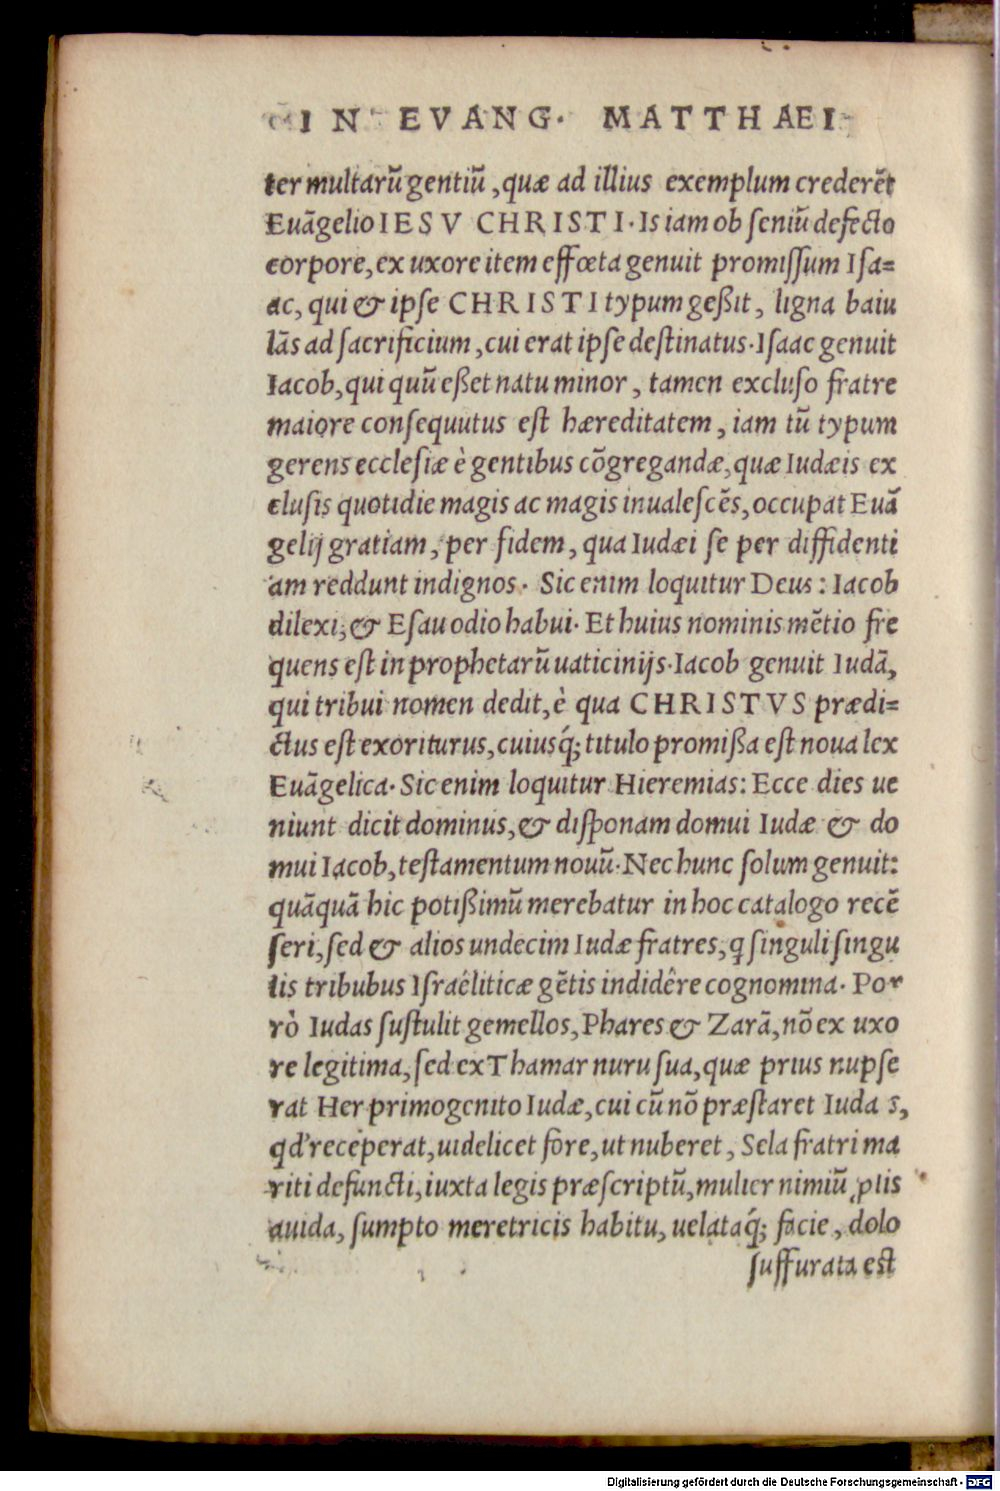 IN EVANG. MATTHAEI
ter multarũ gentiũ, quæ ad illius exemplum crederẽt
Euãgelio IESV CHRISTI. Is iam ob seniũ defecto
corpore, ex uxore item effœta genuit promissum Isa=
ac, qui & ipse CHRISTI typum geßit, ligna baiu
lãs ad sacrificium, cui erat ipse destinatus. Isaac genuit
Iacob, qui quũ eßet natu minor, tamen excluso fratre
maiore consequutus est hæreditatem, iam tũ typum
gerens ecclesiæ è gentibus cõgregandæ, quæ Iudæis ex
clusis quotidie magis ac magis inualescẽs, occupat Euã
gelij gratiam, per fidem, qua Iudæi se per diffidenti
am reddunt indignos. Sic enim loquitur Deus: Iacob
dilexi, & Esau odio habui. Et huius nominis mẽtio fre
quens est in prophetarũ uaticinijs. Iacob genuit Iudã,
qui tribui nomen dedit, è qua CHRISTVS prædi=
ctus est exoriturus, cuiusq́; titulo promißa est noua lex
Euãgelica. Sic enim loquitur Hieremias: Ecce dies ue
niunt dicit dominus, & disponam domui Iudæ & do
mui Iacob, testamentum nouũ. Nec hunc solum genuit:
quãquã hic potißimũ merebatur in hoc catalogo recẽ
seri, sed & alios undecim Iudæ fratres, q̃ singuli singu
lis tribubus Israéliticæ gẽtis indidêre cognomina. Por
rò Iudas sustulit gemellos, Phares & Zarã, nõ ex uxo
re legitima, sed ex Thamar nuru sua, quæ prius nupse
rat Her primogenito Iudæ, cui cũ nõ præstaret Iudas,
qd' receperat, uidelicet fore, ut nuberet, Sela fratri ma
riti defuncti, iuxta legis præscriptũ, mulier nimiũ ꝓlis
auida, sumpto meretricis habitu, uelataq́; facie, dolo
suffurata est
Digitalisierung gefördert durch die Deutsche Forschungsgemeinschaft - DFG